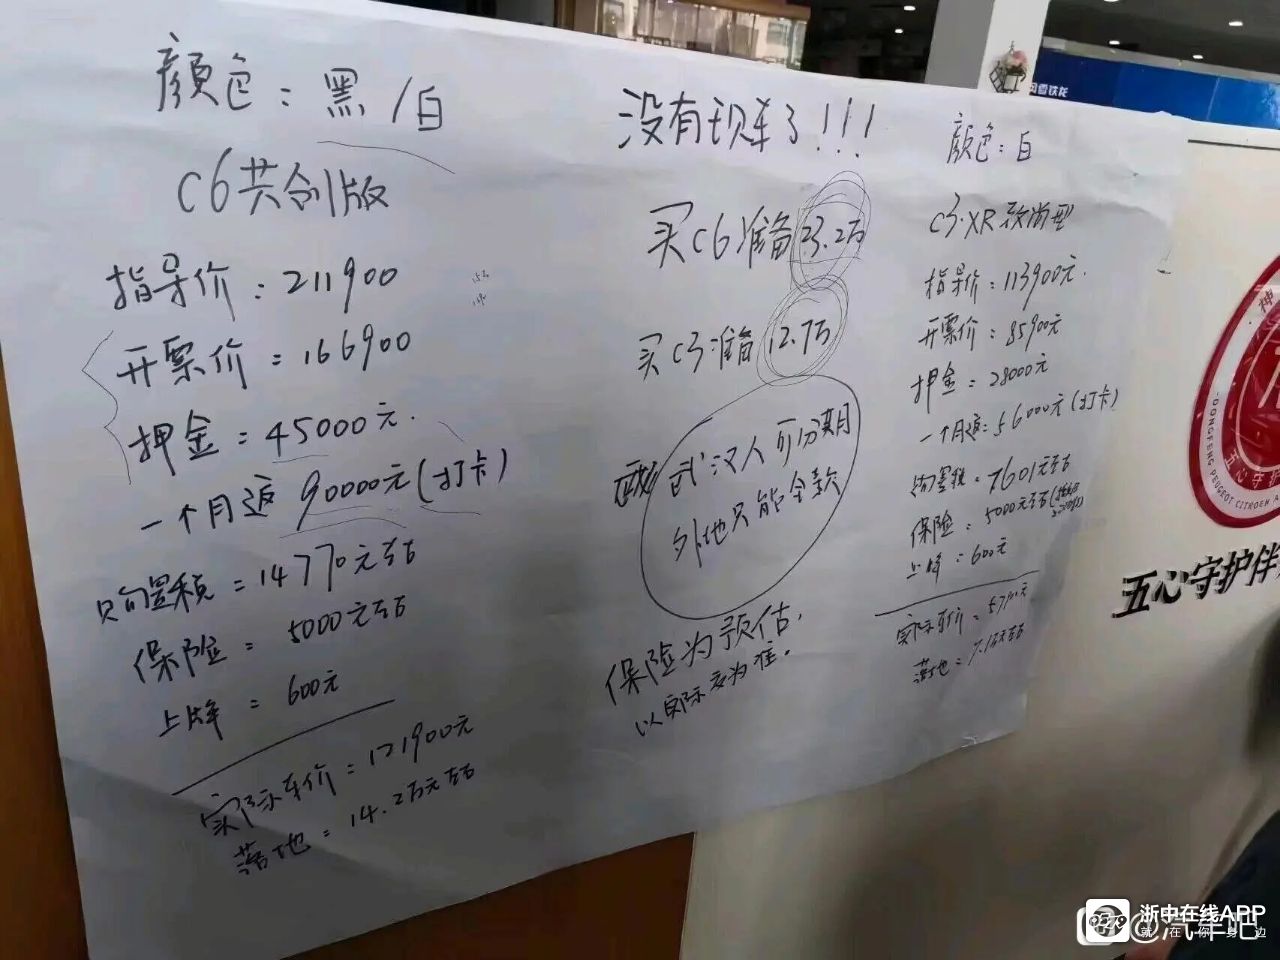 颜色：黑/白
C6共创版
指导价：211900
开票价：166900
押金：45000元.
一个月返 90000元(打卡)
购置税：14770元左右
保险：5000元左右
上牌：600元
实际车价：121900元
落地：14.2万元左右
没有现车了!!!
买C6准备23.2万
买C3准备12.7万
武汉人可分期
外地只能全款
保险为预估，
以实际为准。
颜色：白
C3-XR致尚型
指导价：113900元.
开票价：85900元
押金：28000元
一个月返：56000元(打卡)
购置税：7601元左右
保险：5000元左右
上牌：600元
实际车价：
落地：7.1万左右
雪铁龙
神
DONGFENG PEUGEOT CITROEN
五心守护
五心守护伴
浙中在线APP
就在你身边
@汽车吧